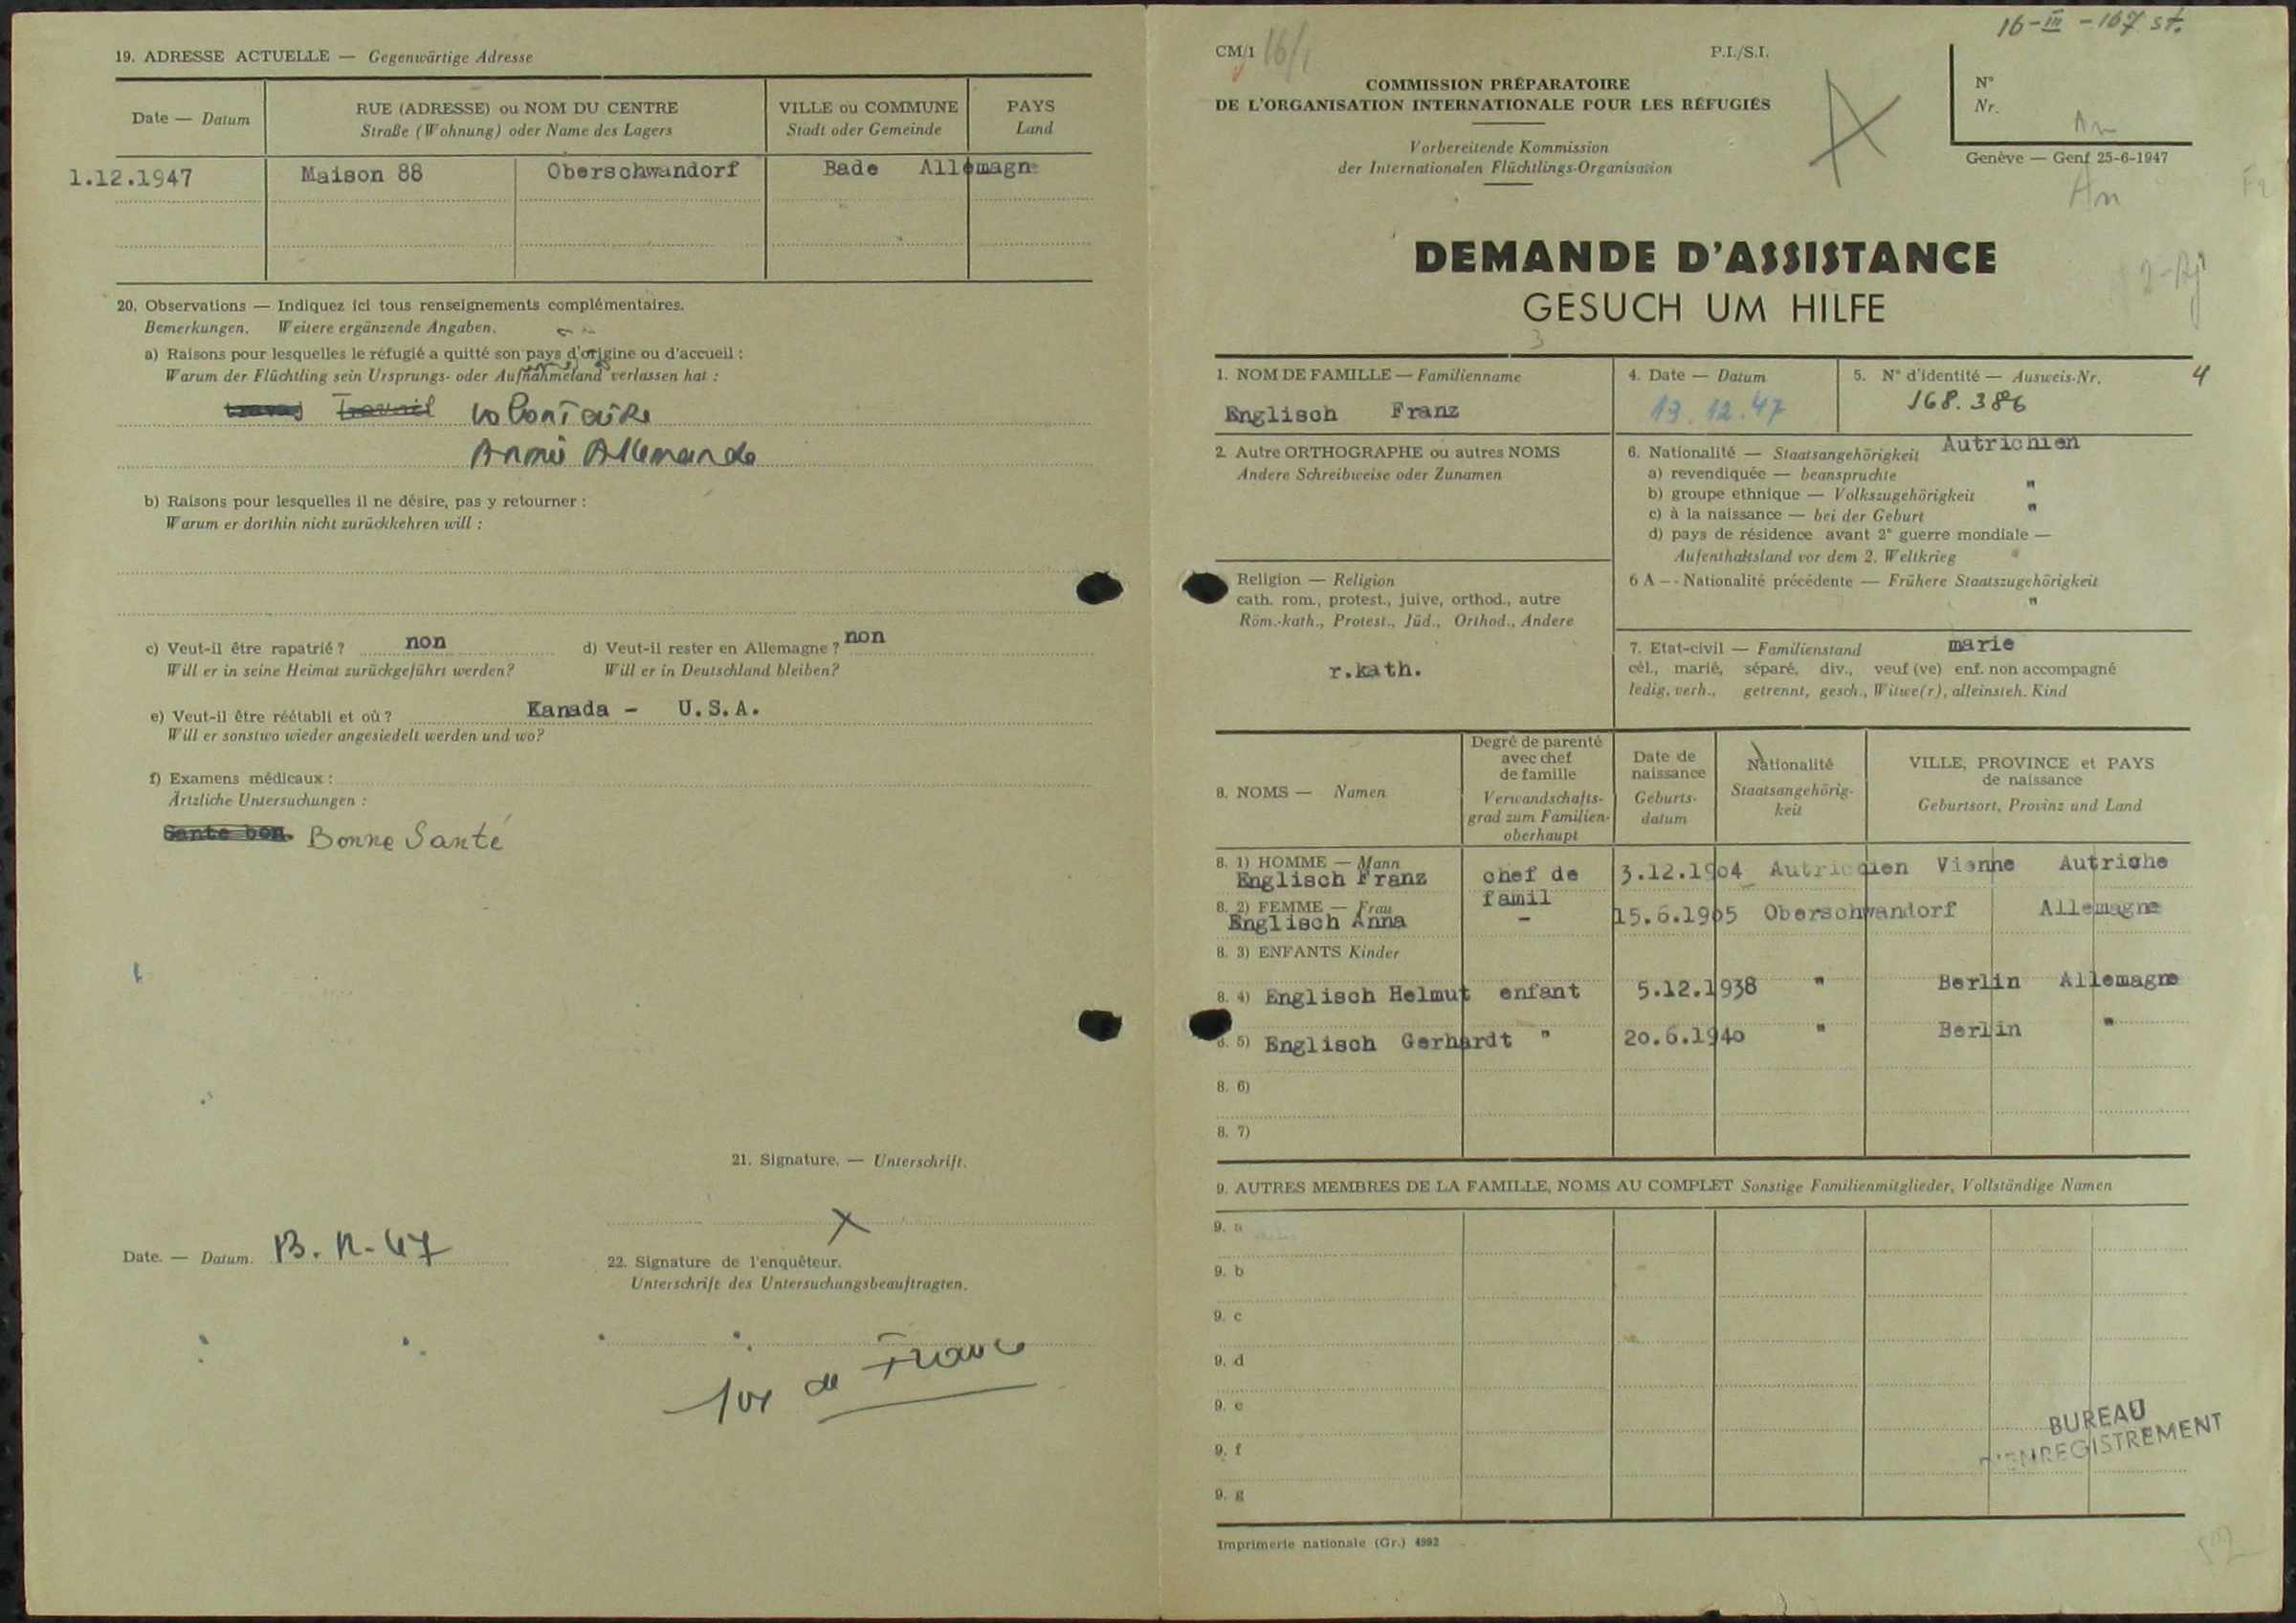 19. ADRESSE ACTUELLE — Gegenwärtige Adresse
Date — Datum
RUE (ADRESSE) ou NOM DU CENTRE
Straße (Wohnung) oder Name des Lagers
VILLE ou COMMUNE
Stadt oder Gemeinde
PAYS
Land
1.12.1947 Maison 88 Oberschwandorf Bade Allemagne
20. Observations — Indiquez ici tous renseignements complémentaires.
Bemerkungen. Weitere ergänzende Angaben.
a) Raisons pour lesquelles le réfugié a quitté son pays d'origine ou d'accueil :
Warum der Flüchtling sein Ursprungs- oder Aufnahmeland verlassen hat :
Travail volontaire
Armée Allemande
b) Raisons pour lesquelles il ne désire, pas y retourner :
Warum er dorthin nicht zurückkehren will :
c) Veut-il être rapatrié ? non d) Veut-il rester en Allemagne ? non
Will er in seine Heimat zurückgeführt werden? Will er in Deutschland bleiben?
e) Veut-il être réétabli et où ? Kanada - U.S.A.
Will er sonstwo wieder angesiedelt werden und wo?
f) Examens médicaux :
Ärtzliche Untersuchungen :
Sante bon. Bonne Santé
21. Signature. — Unterschrift.
X
Date. — Datum. 13.12.47
22. Signature de l'enquêteur.
Unterschrift des Untersuchungsbeauftragten.
de
16-III-167 st.
CM/1 16/1 P.I./S.I.
COMMISSION PRÉPARATOIRE
DE L'ORGANISATION INTERNATIONALE POUR LES RÉFUGIÉS
Vorbereitende Kommission
der Internationalen Flüchtlings-Organisation
N°
Nr.
An
Genève — Genf 25-6-1947
An
A
DEMANDE D'ASSISTANCE
GESUCH UM HILFE
3
1. NOM DE FAMILLE — Familienname
Englisch Franz
4. Date — Datum
13.12.47
5. N° d'identité — Ausweis-Nr. 4
168.386
2. Autre ORTHOGRAPHE ou autres NOMS
Andere Schreibweise oder Zunamen
6. Nationalité — Staatsangehörigkeit Autrichien
a) revendiquée — beanspruchte "
b) groupe ethnique — Volkszugehörigkeit "
c) à la naissance — bei der Geburt "
d) pays de résidence avant 2e guerre mondiale —
Aufenthaltsland vor dem 2. Weltkrieg "
6 A — Nationalité précédente — Frühere Staatszugehörigkeit
"
Religion — Religion
cath. rom., protest., juive, orthod., autre
Röm.-kath., Protest., Jüd., Orthod., Andere
r.kath.
7. Etat-civil — Familienstand marie
cél., marié, séparé, div., veuf (ve) enf. non accompagné
ledig, verh., getrennt, gesch., Witwe(r), alleinsteh. Kind
8. NOMS — Namen
Degré de parenté
avec chef
de famille
Verwandschafts-
grad zum Familien-
oberhaupt
Date de
naissance
Geburts-
datum
Nationalité
Staatsangehörig-
keit
VILLE, PROVINCE et PAYS
de naissance
Geburtsort, Provinz und Land
8. 1) HOMME — Mann
Englisch Franz chef de famil 3.12.1904 Autrichien Vienne Autriche
8. 2) FEMME — Frau
Englisch Anna - 15.6.1905 Oberschwandorf Allemagne
8. 3) ENFANTS Kinder
8. 4) Englisch Helmut enfant 5.12.1938 " Berlin Allemagne
8. 5) Englisch Gerhardt " 20.6.1940 " Berlin "
8. 6)
8. 7)
9. AUTRES MEMBRES DE LA FAMILLE, NOMS AU COMPLET Sonstige Familienmitglieder, Vollständige Namen
9. a
9. b
9. c
9. d
9. e
9. f
9. g
BUREAU
D'ENREGISTREMENT
Imprimerie nationale (Gr.) 4992